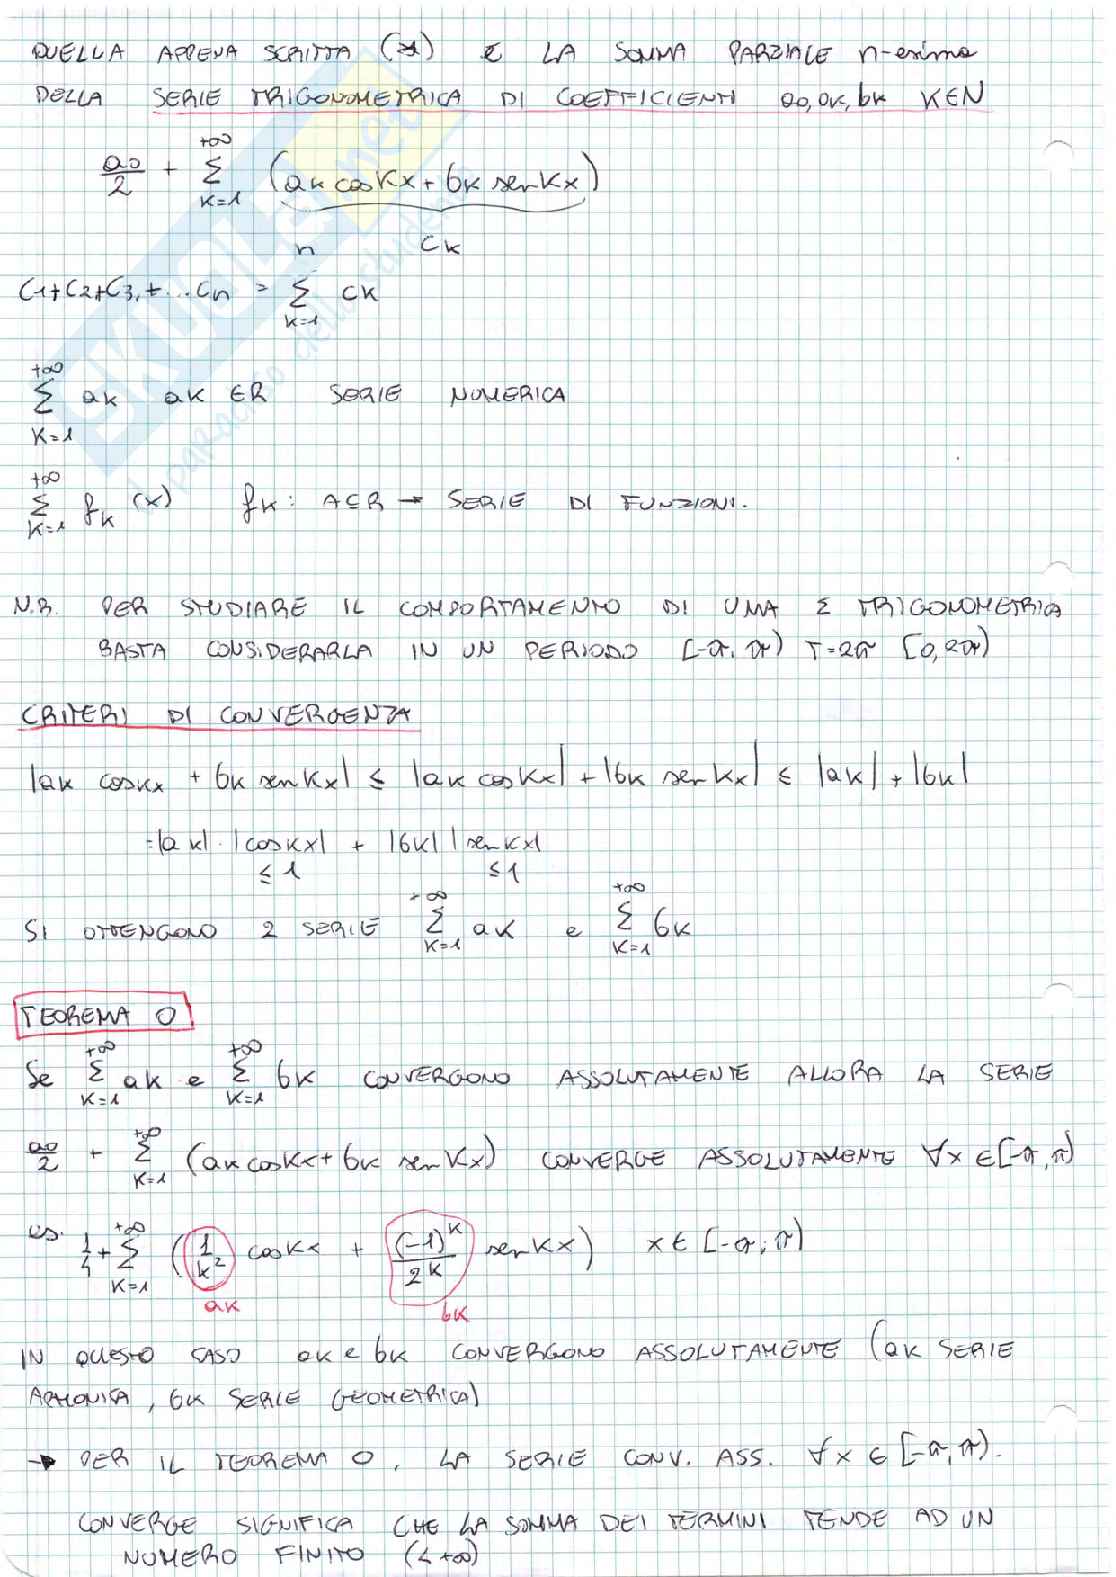 QUELLA APPENA SCRITTA (*) È LA SOMMA PARZIALE n-esima
DELLA SERIE TRIGONOMETRICA DI COEFFICIENTI a0, ak, bk K∈N
a0/2 + +∞ Σ K=1 (ak cosKx + bk senKx)
ck
C1+C2+C3,+...Cn = n Σ K=1 ck
+∞ Σ K=1 ak ak ∈R SERIE NUMERICA
+∞ Σ K=1 fk (x) fk: A⊆R → SERIE DI FUNZIONI.
N.B. PER STUDIARE IL COMPORTAMENTO DI UNA Σ TRIGONOMETRICA
BASTA CONSIDERARLA IN UN PERIODO [-π, π) T=2π [0, 2π)
CRITERI DI CONVERGENZA
|ak coskx + bk senKx| ≤ |ak cosKx| + |bk senKx| ≤ |ak| + |bk|
=|ak|·|cosKx| + |bk| |senKx|
≤1 ≤1
SI OTTENGONO 2 SERIE +∞ Σ K=1 ak e +∞ Σ K=1 bk
TEOREMA 0
Se +∞ Σ K=1 ak e +∞ Σ K=1 bk CONVERGONO ASSOLUTAMENTE ALLORA LA SERIE
a0/2 + +∞ Σ K=1 (ak cosKx + bk senKx) CONVERGE ASSOLUTAMENTE ∀x ∈[-π, π)
es. 1/4 + +∞ Σ K=1 (1/k² cosKx + (-1)^K/2^K senKx) x∈ [-π; π)
ak bk
IN QUESTO CASO ak e bk CONVERGONO ASSOLUTAMENTE (ak SERIE
ARMONICA, bk SERIE GEOMETRICA)
→ PER IL TEOREMA 0, LA SERIE CONV. ASS. ∀x ∈ [-π, π).
CONVERGE SIGNIFICA CHE LA SOMMA DEI TERMINI TENDE AD UN
NUMERO FINITO (<+∞)
SKUOLA.net
il paradiso dello studente